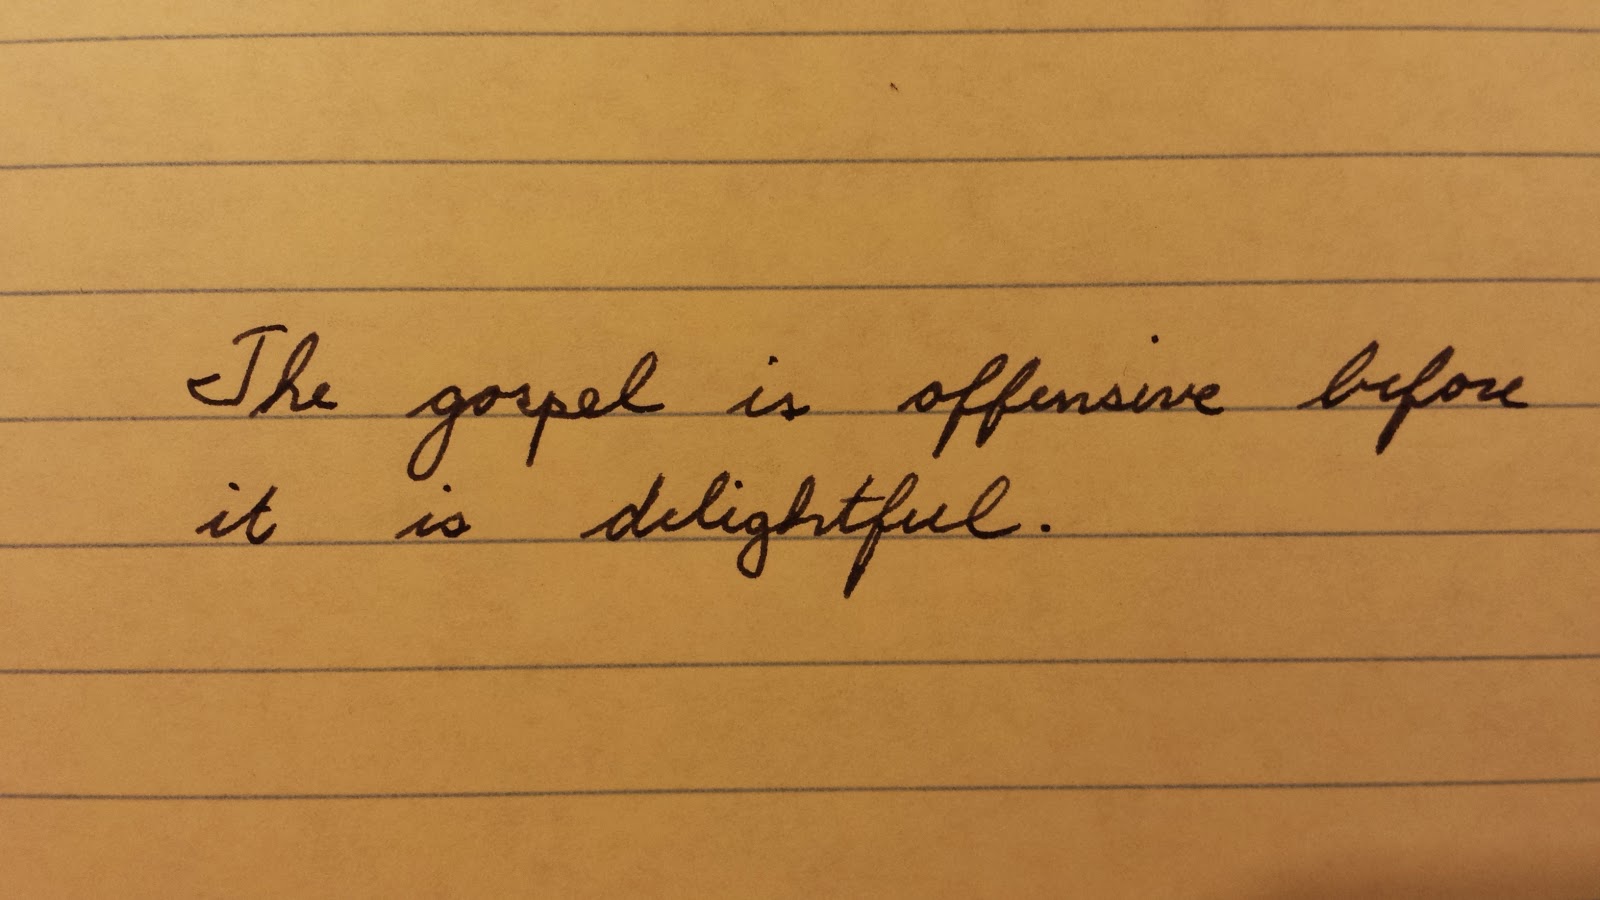 The gospel is offensive before
it is delightful.